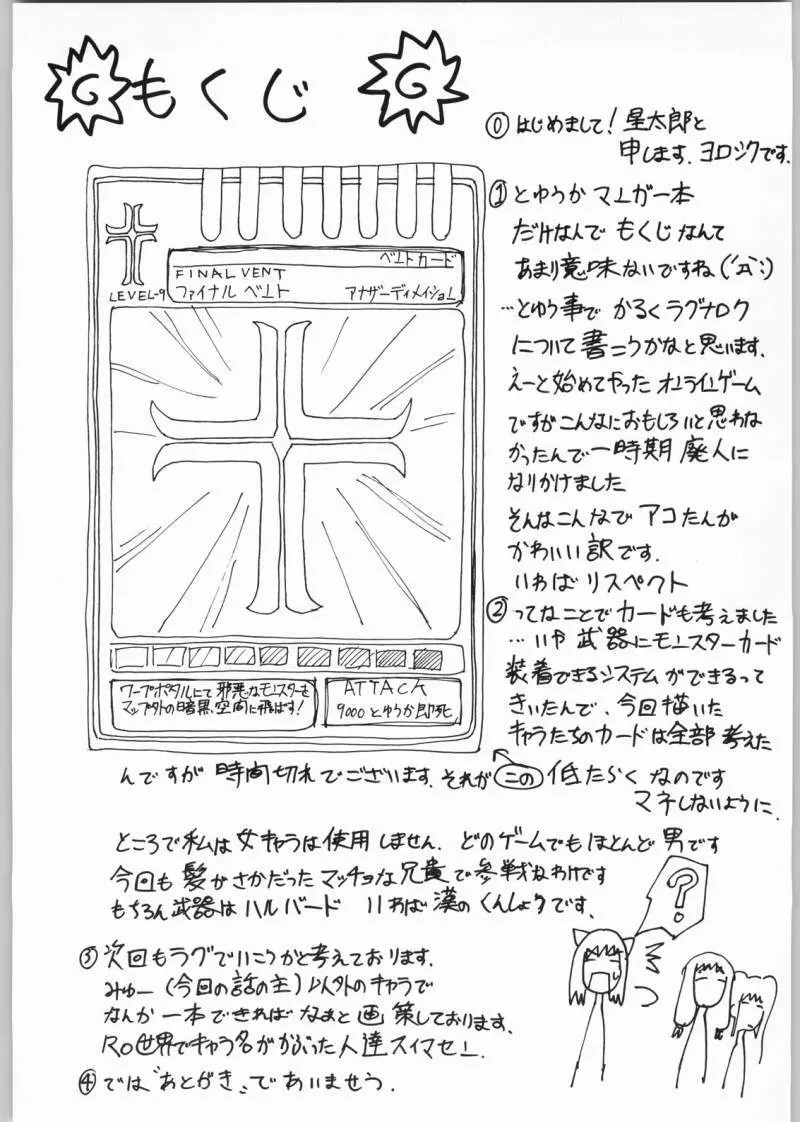 G もくじ G
⓪ はじめまして！星太郎と
申します、ヨロシクです。
① とゆうかマンガ一本
だけなんでもくじなんて
あまり意味ないですね(´д`;)
…とゆう事でかるくラグナロク
について書こうかなと思います。
えーと始めてやったオンラインゲーム
ですがこんなにおもしろいと思わな
かったんで一時期廃人に
なりかけました
そんなこんなでアコたんが
かわいい訳です。
いわばリスペクト
② ってなことでカードも考えました
…いや武器にモンスターカード
装着できるシステムができるって
きいたんで、今回描いた
キャラたちのカードは全部考えた
んですが時間切れでございます、それがこの低たらくなのです
マネしないように、
LEVEL-9
ベントカード
FINAL VENT
ファイナルベント アナザーディメイション
ワープポタルにて邪悪なモンスターを
マップ外の暗黒空間に飛ばす！
ATTACK
9000とゆうか即死
ところで私は女キャラは使用しません、どのゲームでもほとんど男です
今回も髪がさかだったマッチョな兄貴で参戦なわけです
もちろん武器はハルバード いわば漢のくんしょうです、
③ 次回もラグでいこうかと考えております、
みゅー(今回の話の主)以外のキャラで
なんか一本できればなぁと画策しております、
RO世界でキャラ名がかぶった人達スイマセン、
④ では"あとがき"であいませう、
？